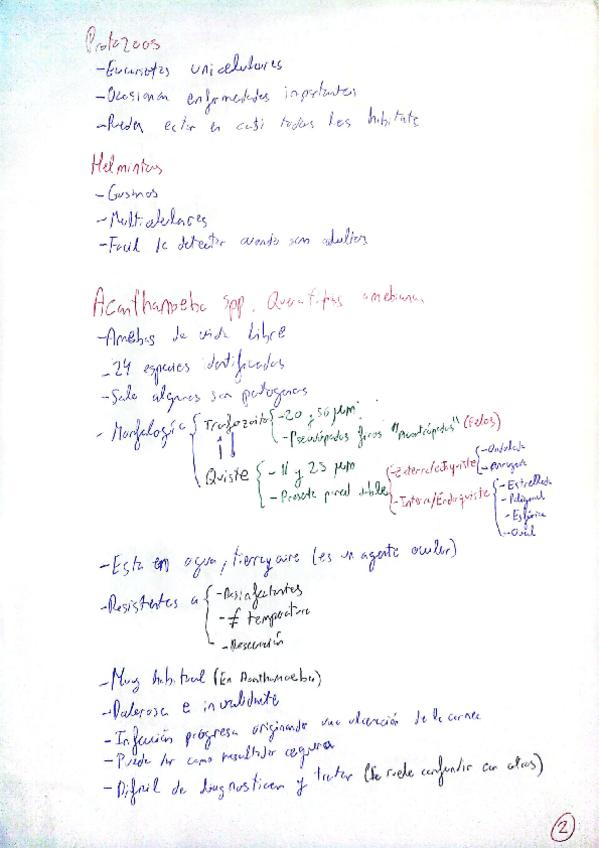 Protozoos
- Eucariotas unicelulares
- Ocasionan enfermedades importantes
- Pueden estar en casi todos los habitats
Helmintos
- Gusanos
- Multicelulares
- Facil de detectar cuando son adultos
Acanthamoeba spp. Queratitis amebiana
- Amebas de vida libre
- 24 especies identificadas
- Solo algunas son patogenas
- Morfología
Trofozoito
- 20 y 50 μm
- Pseudópodos finos "acantópodos" (Pelos)
Quiste
- 11 y 25 μm
- Presenta pared doble
- Externa/ectoquiste
- Ondulada
- Arrugada
- Interna/Endoquiste
- Estrellada
- Poligonal
- Esférica
- Oval
- Esta en agua, tierra y aire (es un agente ocular)
- Resistentes a
- Desinfectantes
- ≠ temperatura
- Desecación
- Muy habitual (En Acanthamoeba)
- Dolorosa e invalidante
- Infección progresa originando una ulceración de la cornea
- Puede dar como resultado ceguera
- Difícil de diagnosticar y tratar (Se suele confundir con otras)
2